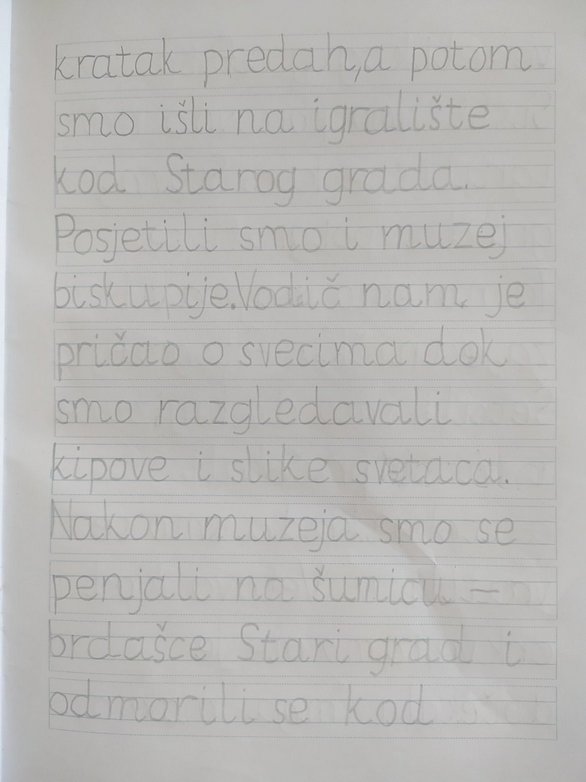 kratak predah,a potom
smo išli na igralište
kod Starog grada.
Posjetili smo i muzej
biskupije.Vodič nam je
pričao o svecima dok
smo razgledavali
kipove i slike svetaca.
Nakon muzeja smo se
penjali na šumicu -
brdašce Stari grad i
odmorili se kod